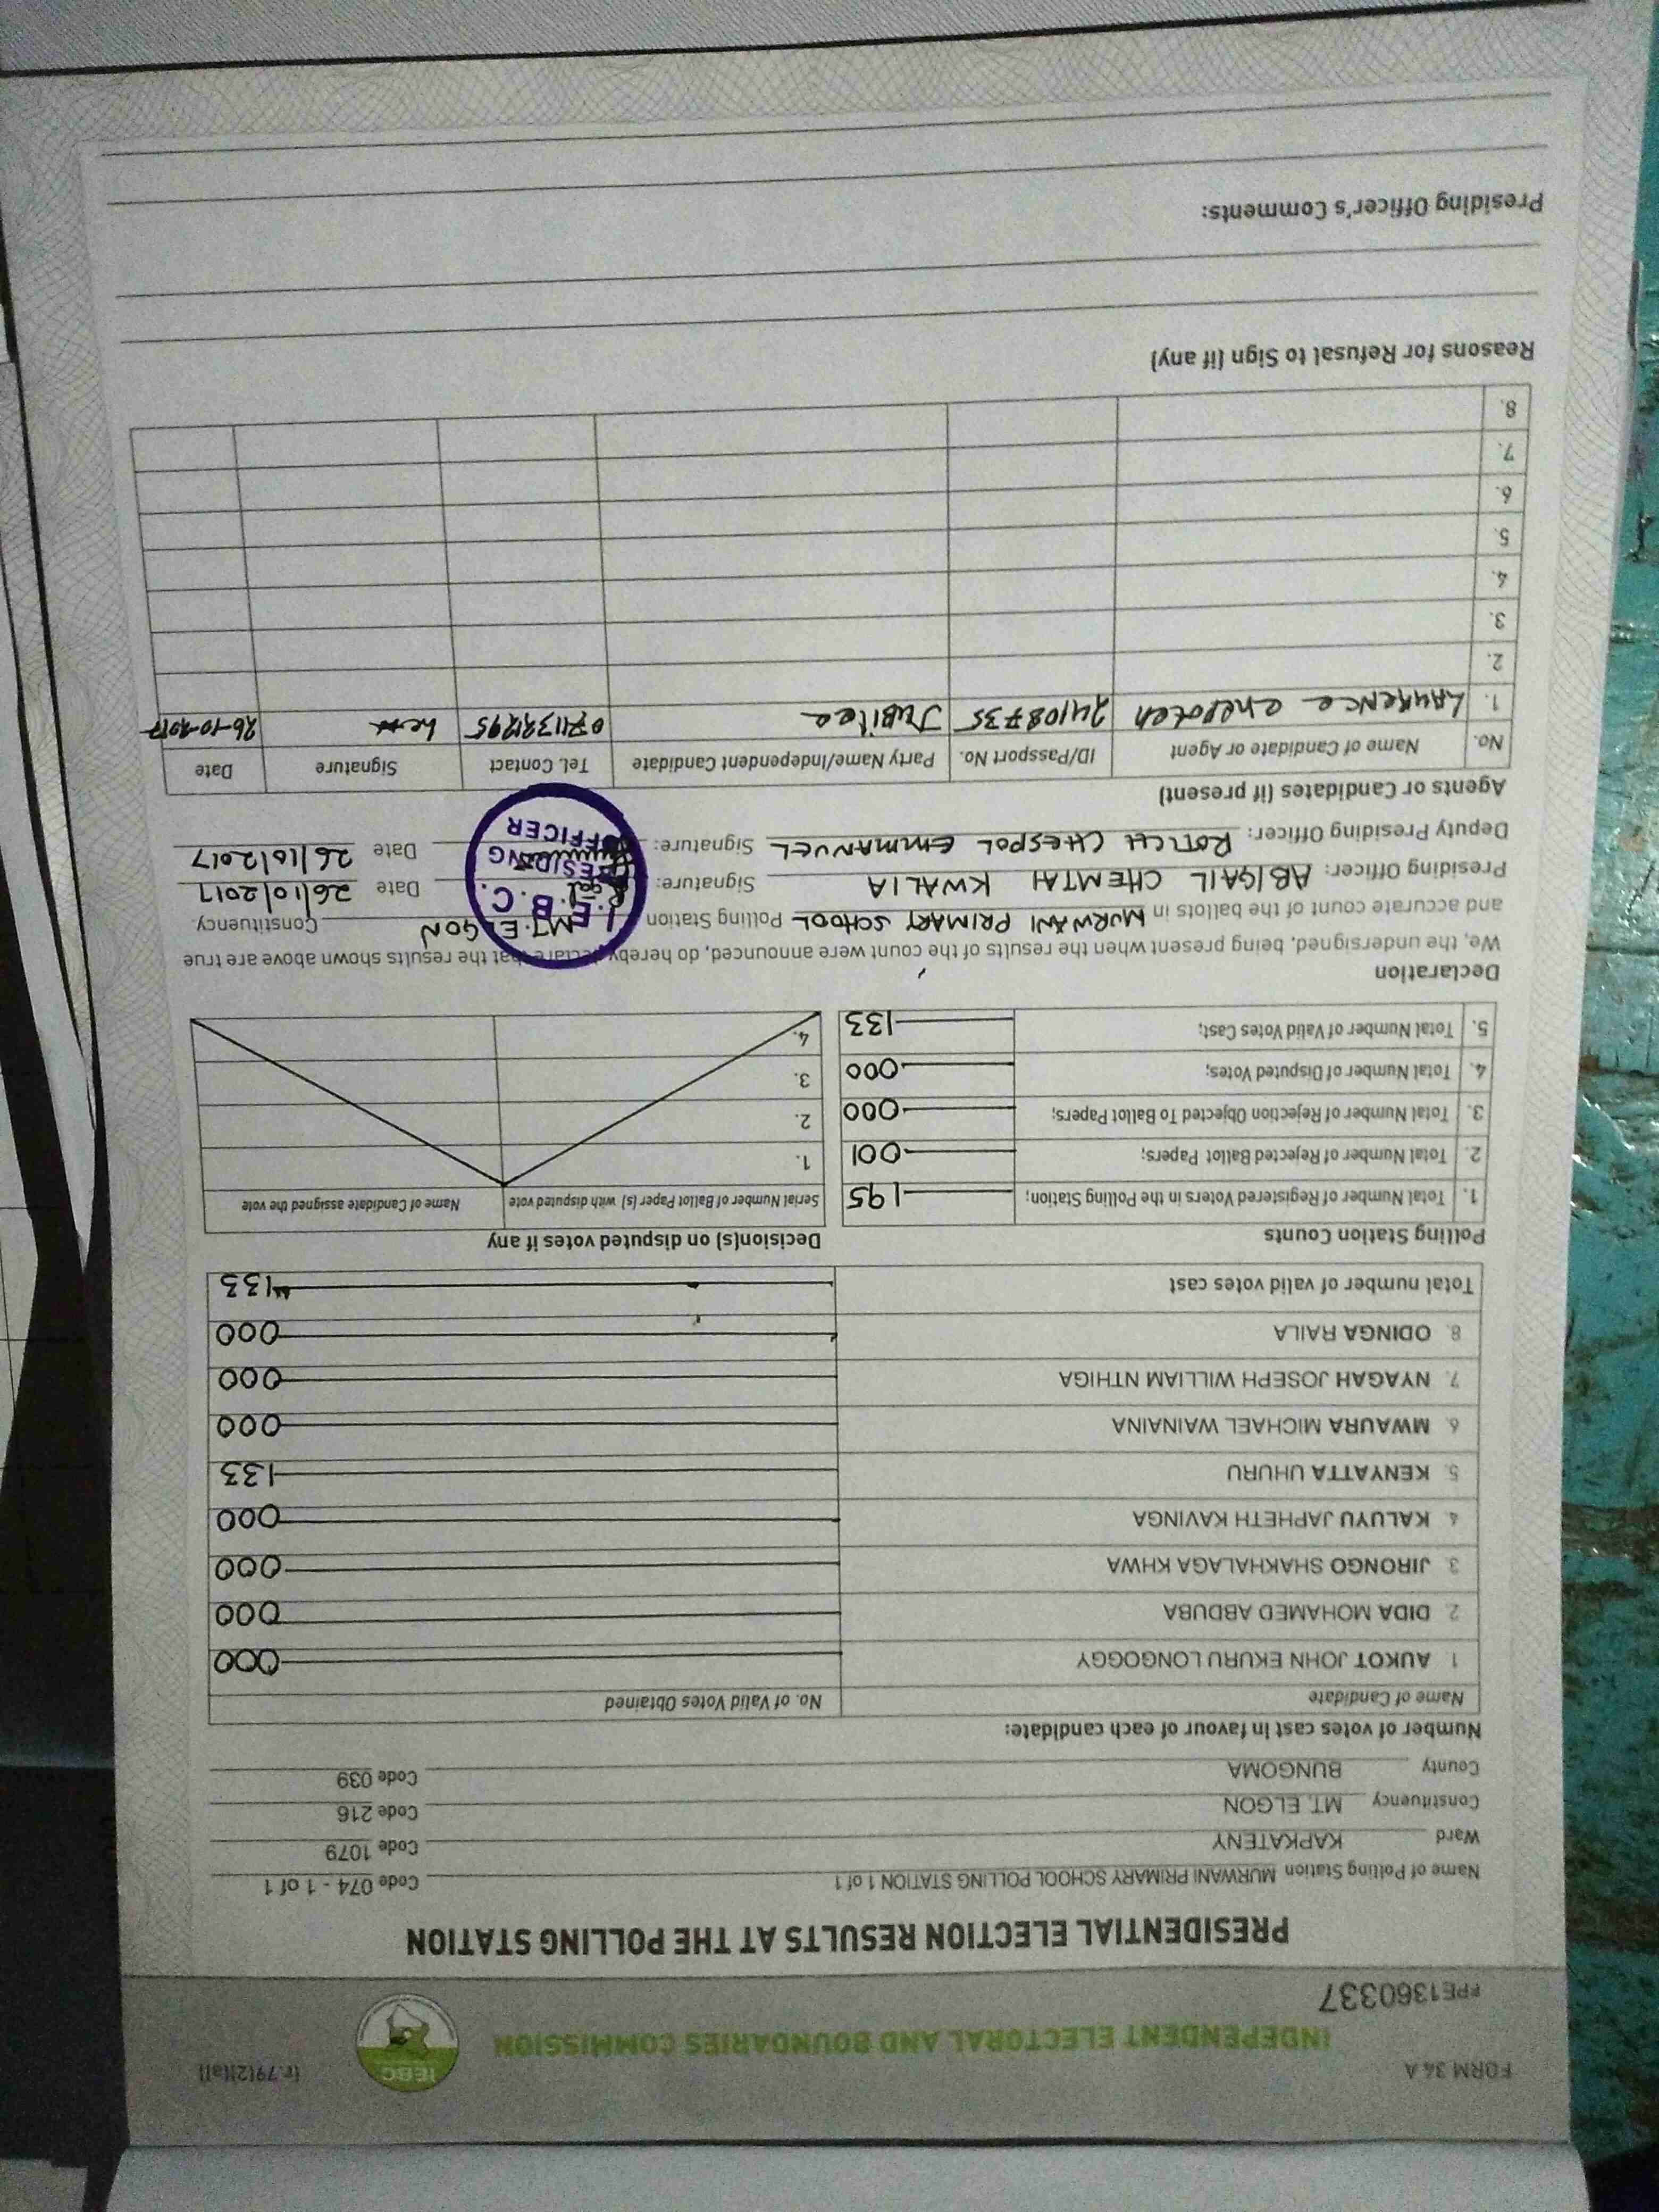 FORM 34 A
(r.79(2)(a))
IEBC
INDEPENDENT ELECTORAL AND BOUNDARIES COMMISSION
PPE1360337
PRESIDENTIAL ELECTION RESULTS AT THE POLLING STATION
Name of Polling Station MURWANI PRIMARY SCHOOL POLLING STATION 1 of 1 Code 074 - 1 of 1
Ward KAPKATENY Code 1079
Constituency MT. ELGON Code 216
County BUNGOMA Code 039
Number of votes cast in favour of each candidate:
Name of Candidate No. of Valid Votes Obtained
1 AUKOT JOHN EKURU LONGOGGY 000
2. DIDA MOHAMED ABDUBA 000
3 JIRONGO SHAKHALAGA KHWA 000
4 KALUYU JAPHETH KAVINGA 000
5. KENYATTA UHURU 133
6 MWAURA MICHAEL WAINAINA 000
7. NYAGAH JOSEPH WILLIAM NTHIGA 000
8. ODINGA RAILA 000
Total number of valid votes cast 133
Polling Station Counts
1. Total Number of Registered Voters in the Polling Station; 195
2. Total Number of Rejected Ballot Papers; 001
3. Total Number of Rejection Objected To Ballot Papers; 000
4. Total Number of Disputed Votes; 000
5. Total Number of Valid Votes Cast; 133
Decision(s) on disputed votes if any
Serial Number of Ballot Paper (s) with disputed vote Name of Candidate assigned the vote
1.
2.
3.
4.
Declaration
We, the undersigned, being present when the results of the count were announced, do hereby declare that the results shown above are true
and accurate count of the ballots in MURWANI PRIMARY SCHOOL Polling Station MT. ELGON Constituency.
Presiding Officer: ABIGAIL CHEMTAI KWALIA Signature: Date 26/10/2017
Deputy Presiding Officer: ROTICH CHESPOL EMMANUEL Signature: Date 26/10/2017
I.E.B.C.
PRESIDING
OFFICER
Agents or Candidates (if present)
No. Name of Candidate or Agent ID/Passport No. Party Name/Independent Candidate Tel. Contact Signature Date
1. LAURENCE 24108735 JUBILEE 26-10-2017
2.
3.
4.
5.
6.
7.
8.
Reasons for Refusal to Sign (if any)
Presiding Officer's Comments: